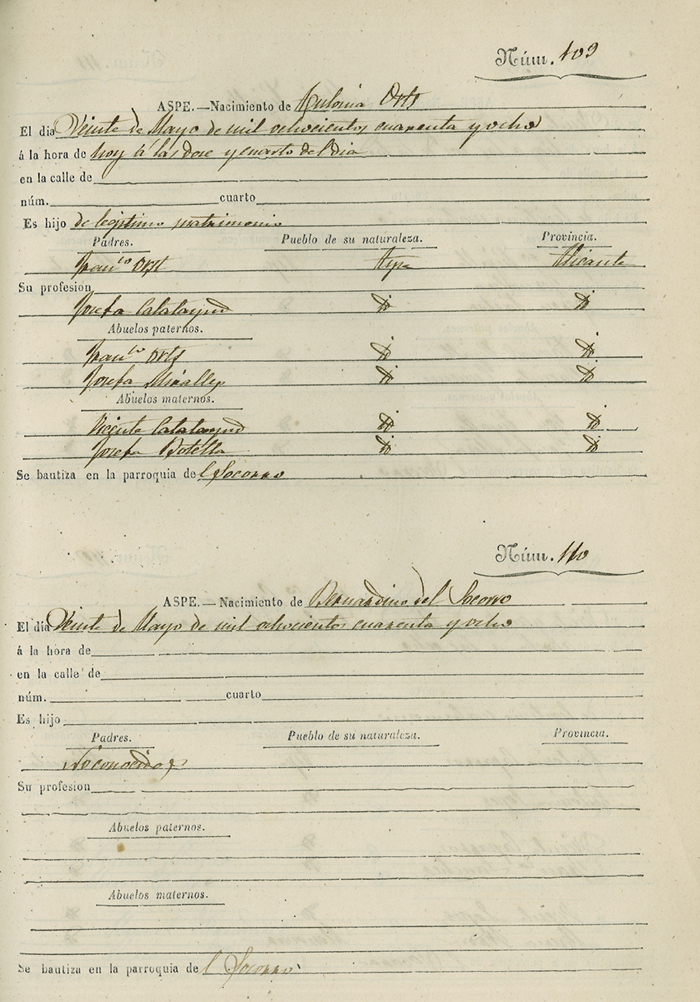 Núm. 109
ASPE.—Nacimiento de Antonia Orts
El dia Veinte de Mayo de mil ochocientos cuarenta y ocho
á la hora de hoy á las dose y cuarto del dia
en la calle de
núm. cuarto
Es hijo de legitimo matrimonio
Padres. Pueblo de su naturaleza. Provincia.
Fran.co Orts Aspe Alicante
Su profesion
Josefa Calatayud
Abuelos paternos.
Fran.co Orts
Josefa Miralles
Abuelos maternos.
Vicente Calatayud
Josefa Botella
Se bautiza en la parroquia del Socorro
Núm. 110
ASPE.—Nacimiento de Bernardino del Socorro
El dia Veinte de Mayo de mil ochocientos cuarenta y ocho
á la hora de
en la calle de
núm. cuarto
Es hijo
Padres. Pueblo de su naturaleza. Provincia.
No conocidos
Su profesion
Abuelos paternos.
Abuelos maternos.
Se bautiza en la parroquia de l Socorro